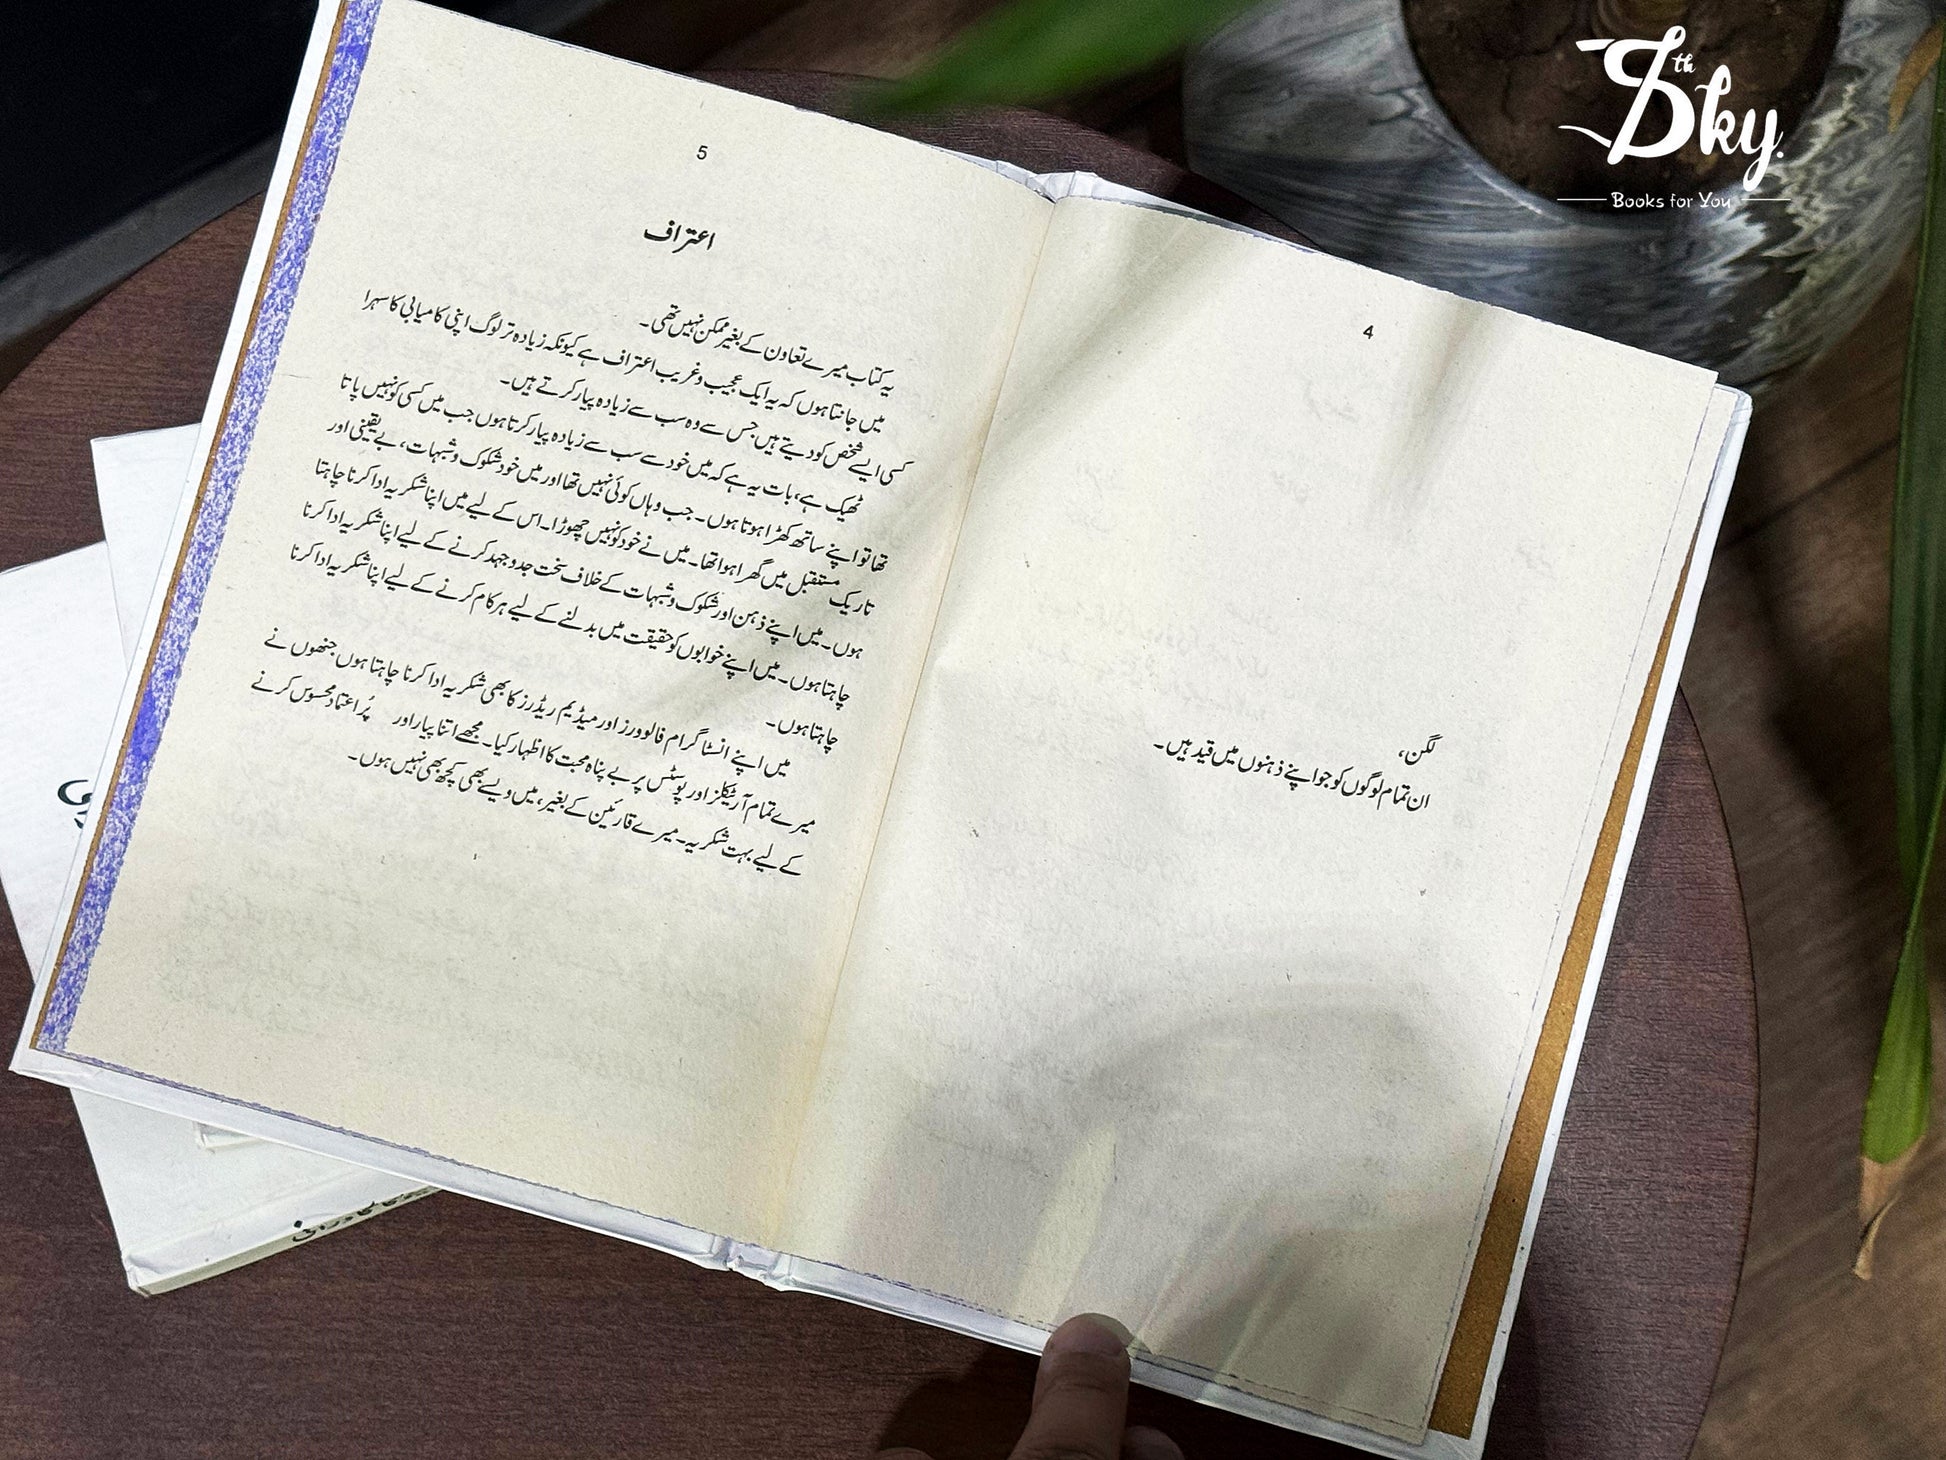 4
لگن،
ان تمام لوگوں کو جو اپنے ذہنوں میں قید ہیں۔
5
اعتراف
یہ کتاب میرے تعاون کے بغیر ممکن نہیں تھی۔
میں جانتا ہوں کہ یہ ایک عجیب و غریب اعتراف ہے کیونکہ زیادہ تر لوگ اپنی کامیابی کا سہرا
کسی ایسے شخص کو دیتے ہیں جس سے وہ سب سے زیادہ پیار کرتے ہیں۔
ٹھیک ہے، بات یہ ہے کہ میں خود سے سب سے زیادہ پیار کرتا ہوں جب میں کسی کو نہیں پاتا
تھا تو اپنے ساتھ کھڑا ہوتا ہوں۔ جب وہاں کوئی نہیں تھا اور میں خود شکوک و شبہات، بے یقینی اور
تاریک مستقبل میں گھرا ہوا تھا۔ میں نے خود کو نہیں چھوڑا۔ اس کے لیے میں اپنا شکریہ ادا کرنا چاہتا
ہوں۔ میں اپنے ذہن اور شکوک و شبہات کے خلاف سخت جدوجہد کرنے کے لیے اپنا شکریہ ادا کرنا
چاہتا ہوں۔ میں اپنے خوابوں کو حقیقت میں بدلنے کے لیے ہر کام کرنے کے لیے اپنا شکریہ ادا کرنا
چاہتا ہوں۔
میں اپنے انسٹاگرام فالوورز اور میڈیم ریڈرز کا بھی شکریہ ادا کرنا چاہتا ہوں جنھوں نے
میرے تمام آرٹیکلز اور پوسٹس پر بے پناہ محبت کا اظہار کیا۔ مجھے اتنا پیار اور پُر اعتماد محسوس کرنے
کے لیے بہت شکریہ۔ میرے قارئین کے بغیر، میں ویسے بھی کچھ بھی نہیں ہوں۔
7th Sky
Books for You